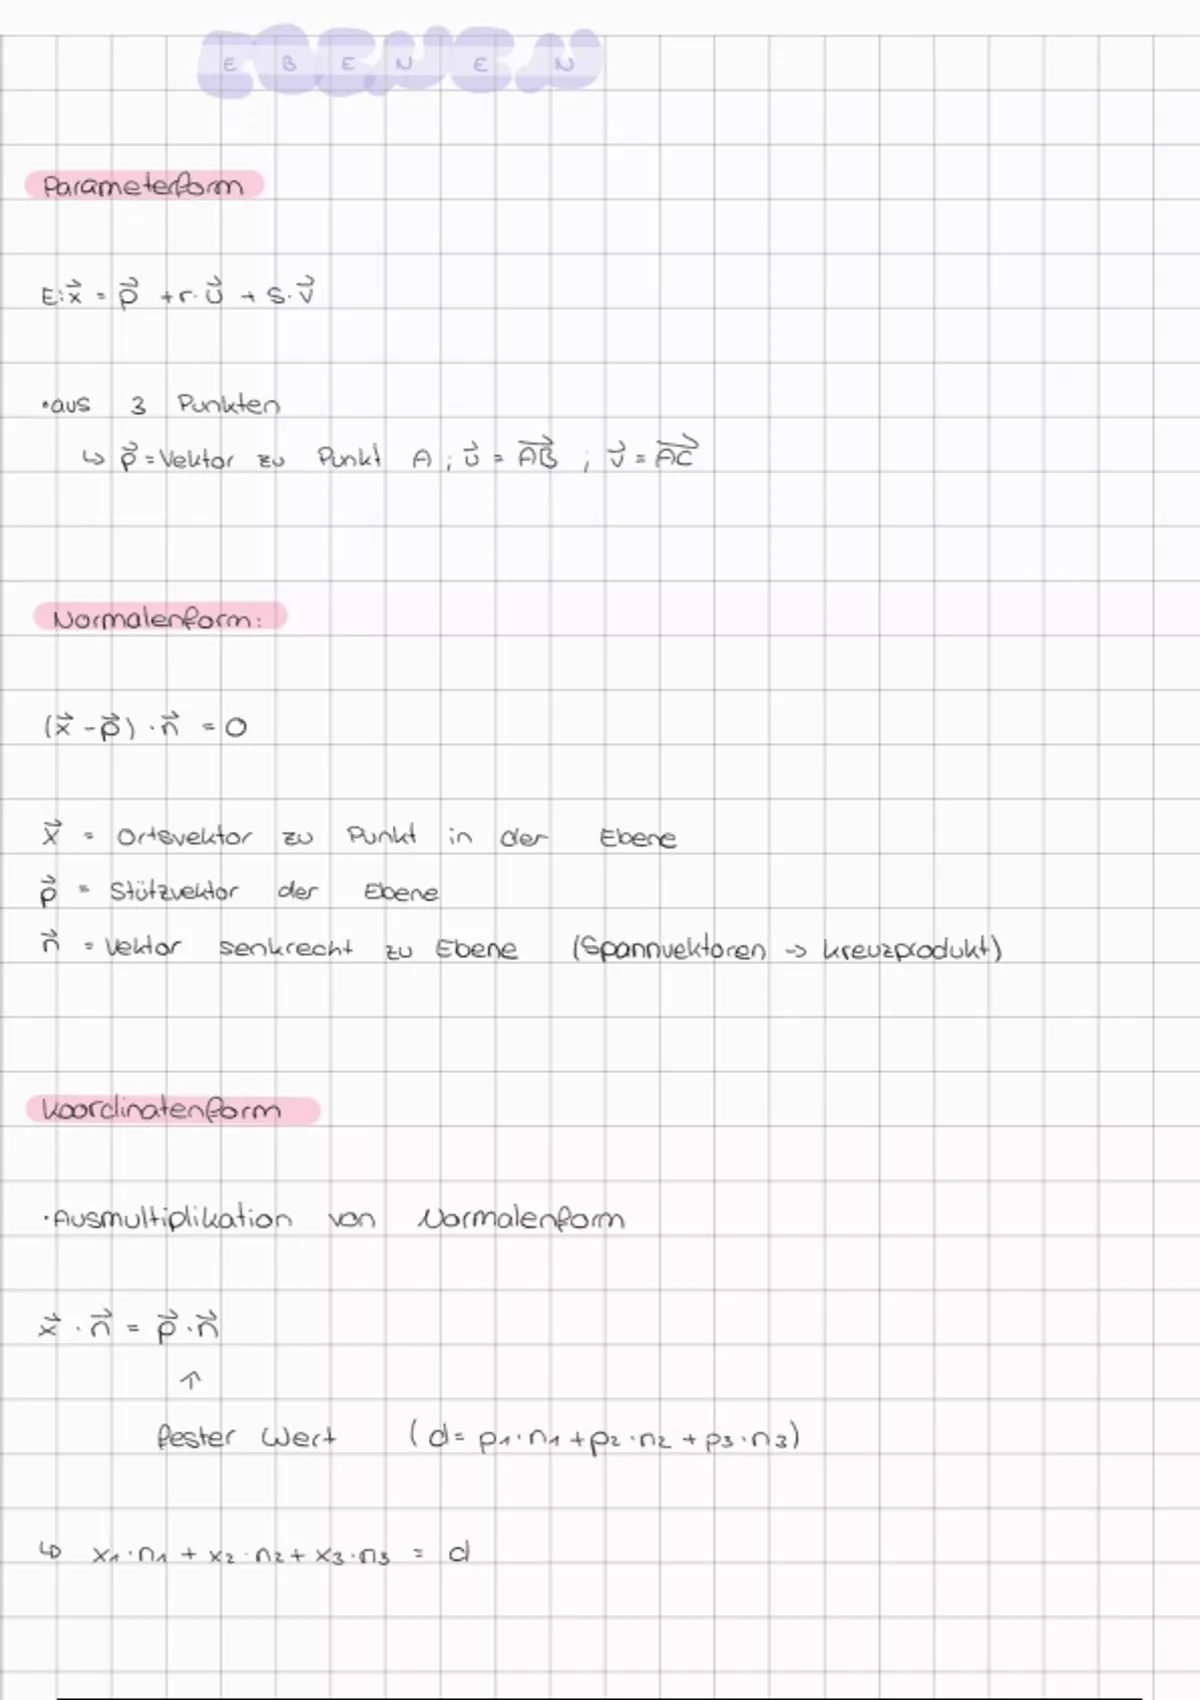 EBENEN
Parameterform
E: x⃗ = p⃗ + r · u⃗ + s · v⃗
• aus 3 Punkten
↳ p⃗ = Vektor zu Punkt A ; u⃗ = A⃗B⃗ ; v⃗ = A⃗C⃗
Normalenform:
(x⃗ - p⃗) · n⃗ = 0
x⃗ = Ortsvektor zu Punkt in der Ebene
p⃗ = Stützvektor der Ebene
n⃗ = Vektor senkrecht zu Ebene (Spannvektoren → Kreuzprodukt)
Koordinatenform
· Ausmultiplikation von Normalenform
x⃗ · n⃗ = p⃗ · n⃗
↑
fester Wert (d = p₁·n₁ + p₂·n₂ + p₃·n₃)
↳ x₁·n₁ + x₂·n₂ + x₃·n₃ = d